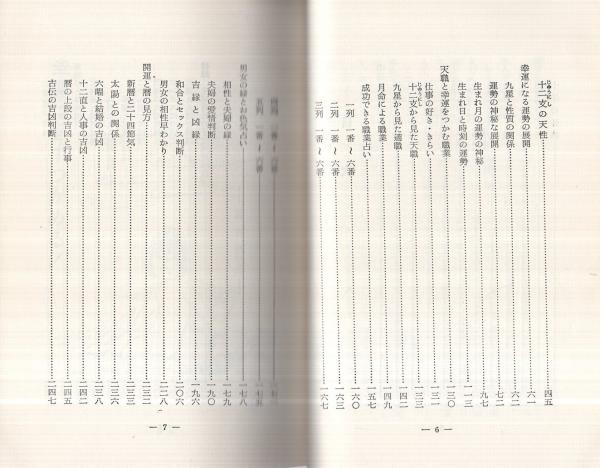 十二支の天性……四五
じゅうにし
幸運になる運勢の展開……六一
九星と性質の関係……六二
運勢の神秘な展開……九七
生まれ月の運勢の神秘
生まれ日と時刻の運勢……一一三
天職と幸運をつかむ職業……一三〇
仕事の好き・きらい
十二支から見た天職……一三三
じゅうにし
九星から見た適職……一四二
月命による職業……一四九
成功できる職業占い……一五七
一列　一番～六番
二列　一番～六番……一六三
三列　一番～六番……一六七
— 6 —
四列　一番～六番
五列　一番～六番……一七五
男女の縁とお色気占い……一七八
相性と夫婦の縁……一七九
夫婦の愛情判断……一九〇
吉縁と凶縁……一九六
和合とセックス判断……二〇六
男女の相性早わかり……二二八
開運と暦の見方……二三二
新暦と二十四節気……二三三
太陽との関係……二三六
六曜と結婚の吉凶……二三八
十二直と人事の吉凶……二四二
暦の上段の吉凶と行事……二四五
古伝の吉凶判断……二四七
— 7 —